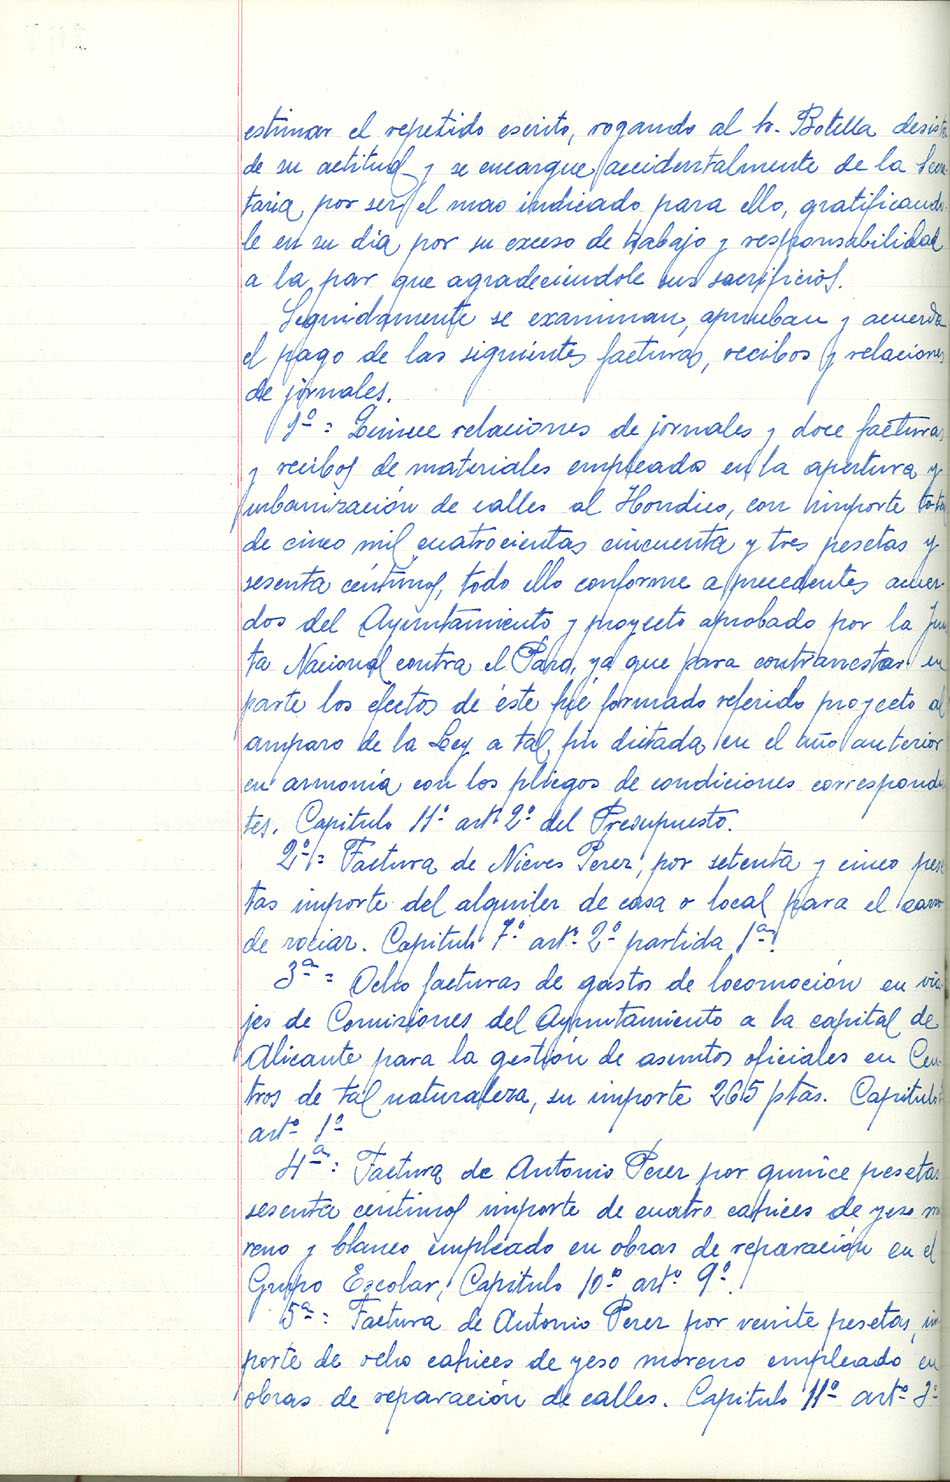 estimar el repetido escrito, rogando al Sr. Botella desis
de su actitud y se encargue accidentalmente de la Secre
taria por ser el mas indicado para ello, gratificando
le en su dia por su exceso de trabajo y responsabilidad
a la par que agradeciendole sus sacrificios.
Seguidamente se examinan, aprueban y acuerda
el pago de las siguientes facturas, recibos y relaciones
de jornales.
1º = Quince relaciones de jornales y doce facturas
y recibos de materiales empleados en la apertura y
urbanización de calles al Hondico, con importe total
de cinco mil cuatrocientas cincuenta y tres pesetas y
sesenta céntimos, todo ello conforme a precedentes acuer-
dos del Ayuntamiento y proyecto aprobado por la Jun
ta Nacional contra el Paro, ya que para contrarrestar en
parte los efectos de éste fué formado referido proyecto al
amparo de la Ley a tal fin dictada en el año anterior
en armonía con los pliegos de condiciones correspondien
tes. Capitulo 11º artº 2º del Presupuesto.
2º = Factura de Nieves Perez, por setenta y cinco pese
tas importe del alquiler de casa o local para el carro
de rociar. Capitulo 7º artº 2º partida 1ª.
3ª = Ocho facturas de gastos de locomoción en via
jes de Comisiones del Ayuntamiento a la capital de
Alicante para la gestión de asuntos oficiales en Cen
tros de tal naturaleza, su importe 265 ptas. Capitulo
artº 1º
4ª = Factura de Antonio Perez por quince pesetas
sesenta céntimos importe de cuatro cahices de yeso mo
reno y blanco empleado en obras de reparación en el
Grupo Escolar, Capitulo 10º artº 9º.
5ª = Factura de Antonio Perez por veinte pesetas, im
porte de ocho cahices de yeso moreno empleado en
obras de reparación de calles. Capitulo 11º artº 3º